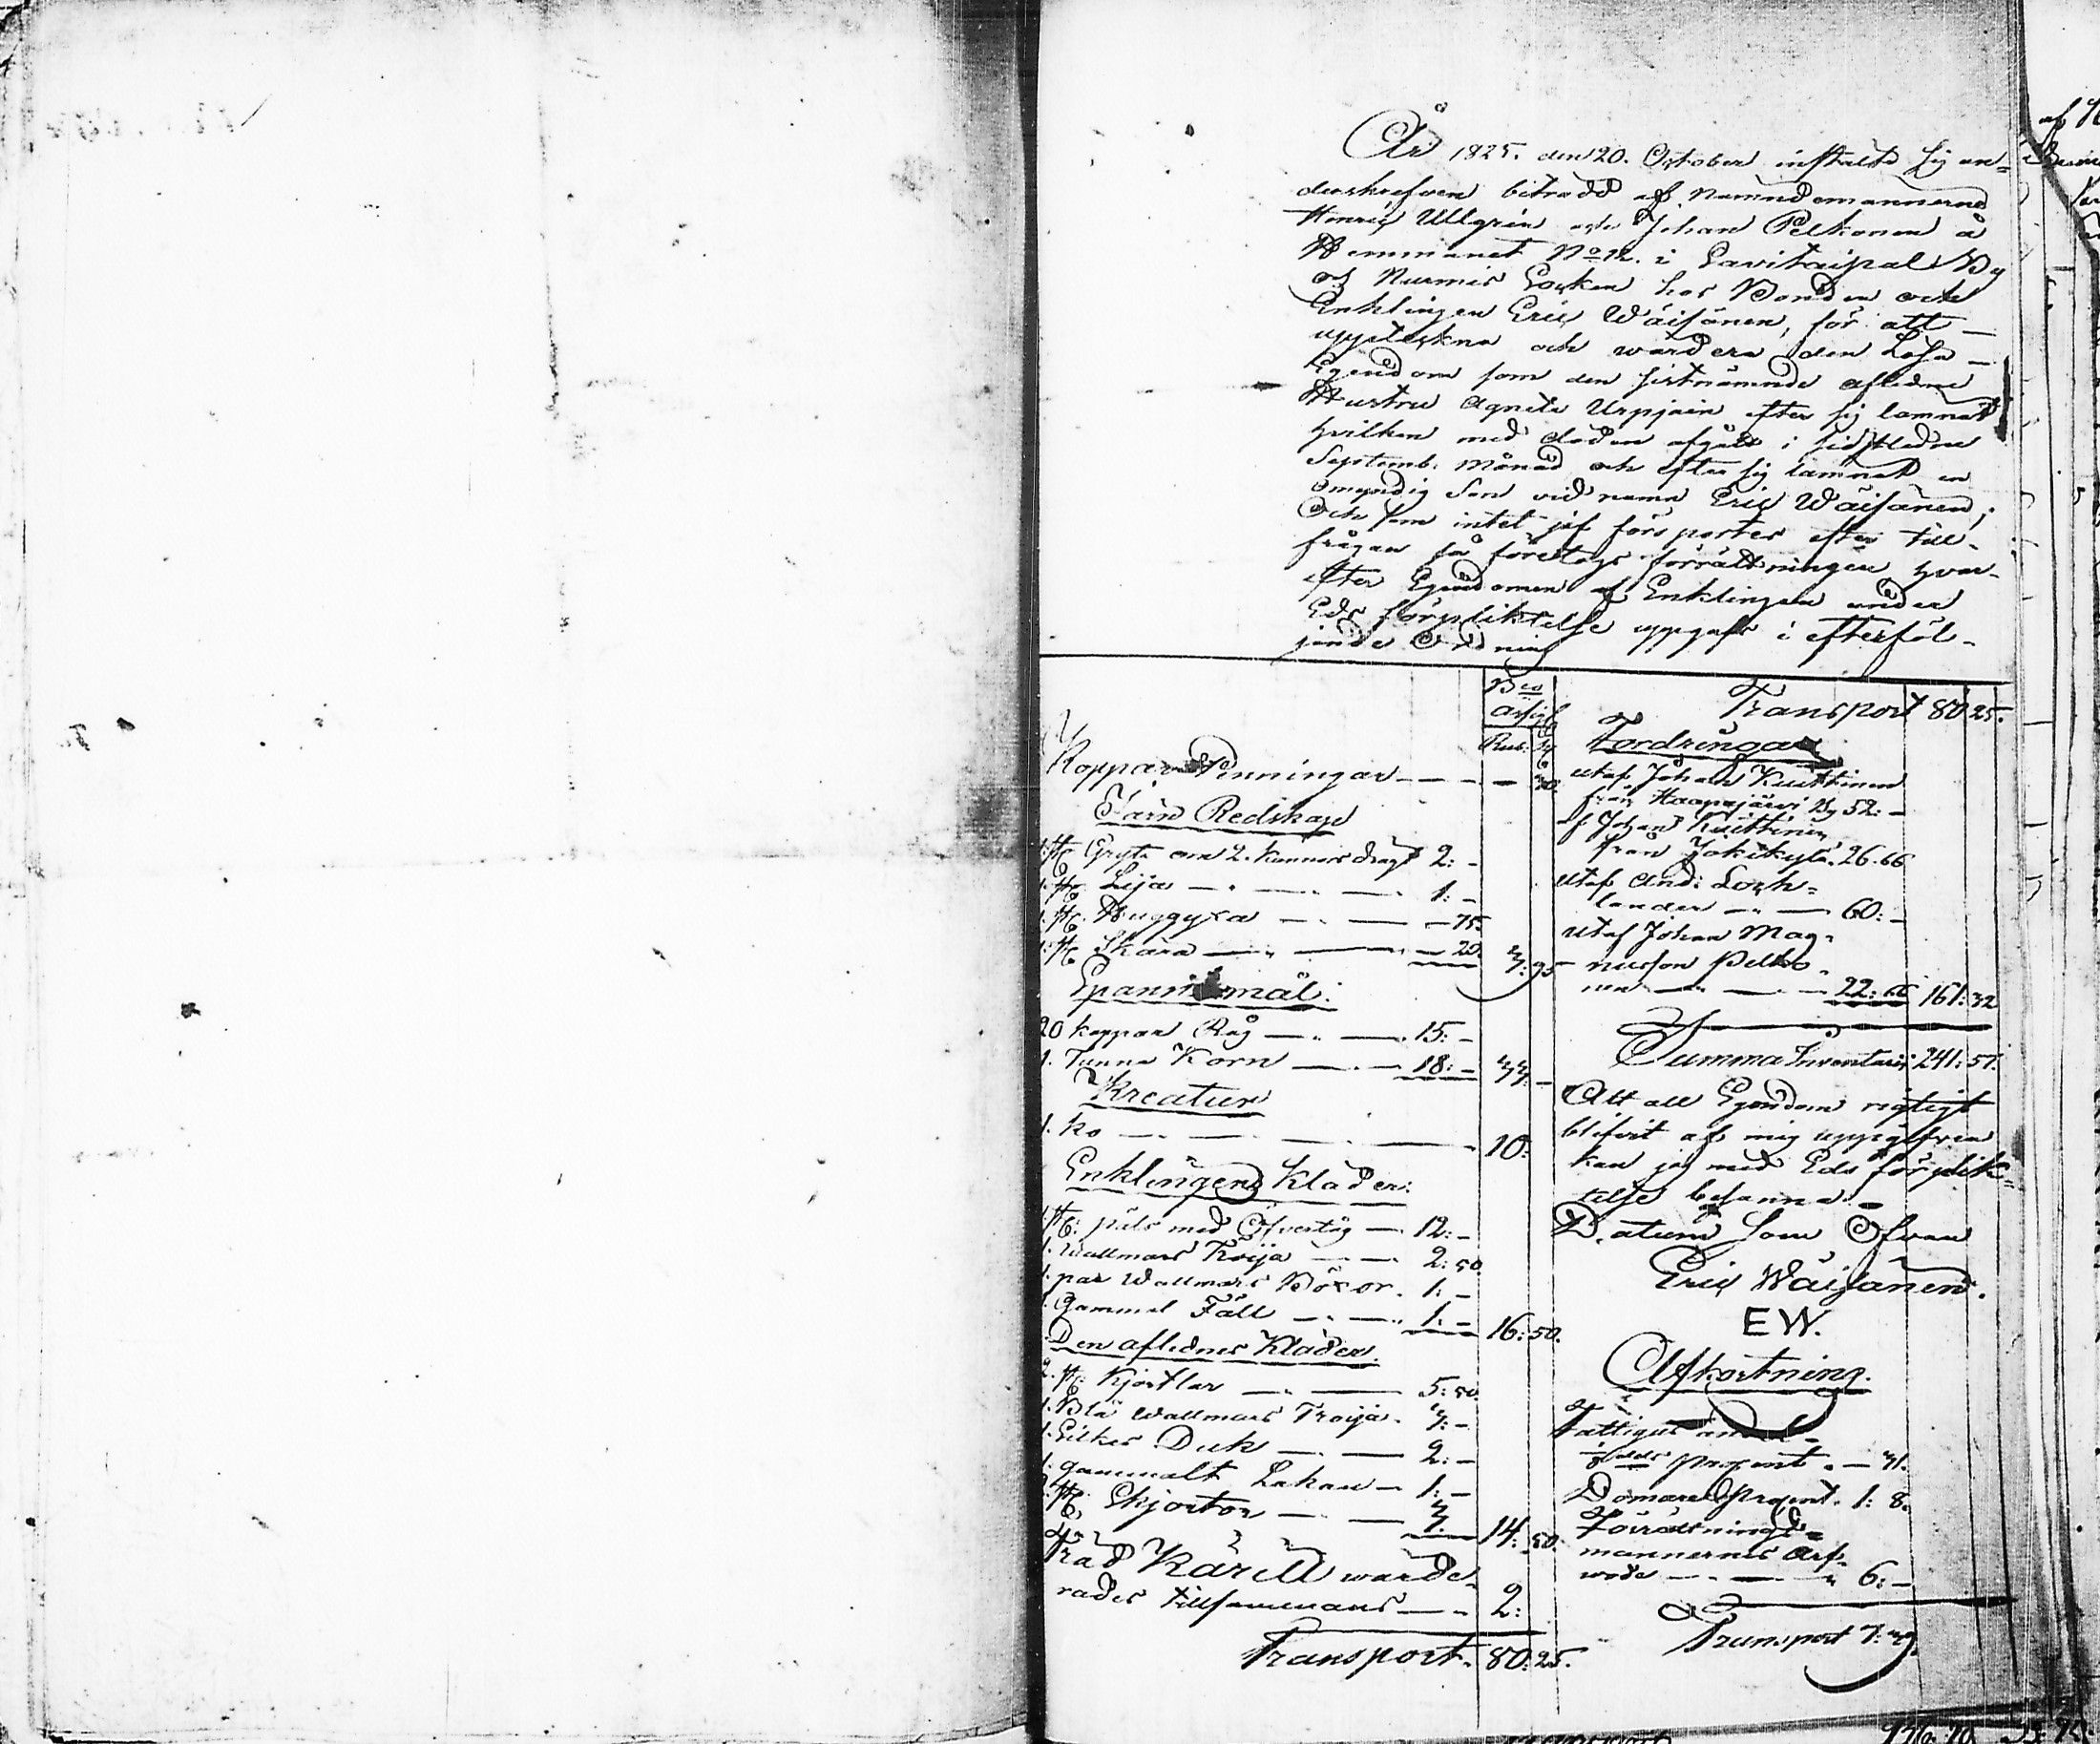 År 1825. den 20. October instälte sig un=
derskrefven biträdd af Nämndemännerne
Henric Ullgrén och Johan Pelkonen å
Hemmanet No 12. i Savitaipal By
och Nurmis Socken hos Bonden och
Enklingen Eric Wäisänen, för att
uppteckna och wärdera den Lösa
Egendom som den sistnämnde aflidne
Hustru Agneta Urpiain efter sig lämnat
hvilken med döden afgått i sidstledne
Septemb: Månad och efter sig lämnat en
omyndig Son vid namn Eric Wäisänen;
Och som intet jäf försportes efter till-
frågan så företogs förrättningen hvar-
efter Egendomen af Enklingen under
Eds förpliktelse uppgafs i efterföl-
jande Ordning
Bco
Assig
Rub: K
Koppar Penningar — 30.
Järn Redskap
1. st. Gryta om 2. kannors drag 2: -
1. st. Lija 1: -
1. st. Huggyxa — 75.
1. st. Skära — 20. 3: 95
Spannemål:
20 kappar Råg 15: -
1. Tunna Korn 18: - 33: -
Kreatur
1. Ko 10:
Enklingens Kläder:
1. st: päls med Öfvertyg 12: -
1. Wallmars Tröija 2: 50.
1. par Wallmars Böxor. 1: -
1. Gammal Fäll 1: - 16: 50.
Den aflednes Kläder.
2. st: Kjortlar 5: 50.
1. Blå Wallmars Tröija. 3: -
1. Silkes Duk 2: -
1. gammalt Lakan 1: -
st. Skjortor 3. 14: 50.
Träd Käril wärde-
rades tillsammans 2:
Transport. 80: 25.
Transport 80 25.
Fordringar
Utaf Johan Kuittinen
från Haapajärvi By 52: -
af Johan Kuittinen
från Jokikylä. 26. 66
Utaf And: Loch=
lander 60: -
Utaf Johan Mag-
nusson Pelko-
nen 22: 66 161: 32
Summa Inventarii 241: 57.
Att all Egendom rigtigt
blifvit af mig uppgifven
kan jag med Eds förplik=
telse besanna.
Datum som Ofvan
Eric Wäisänen.
EW.
Afkortning.
Fattigas andel
1/8 dels procent. — 31.
Domare procent. 1: 8.
Förrättnings-
männernes Arf-
wode 6: -
Transport 7: 39.